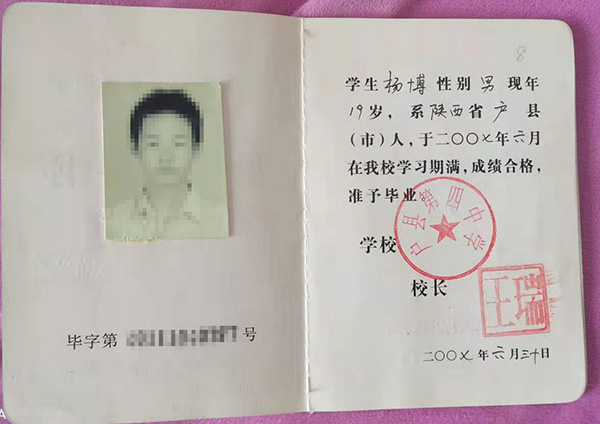 8
学生 杨博 性别 男 现年
19岁，系陕西省户县
（市）人，于二〇〇七年六月
在我校学习期满，成绩合格，
准予毕业
户县第四中学
学校
校长
王瑞
毕字第 号
二〇〇七年六月三十日
A